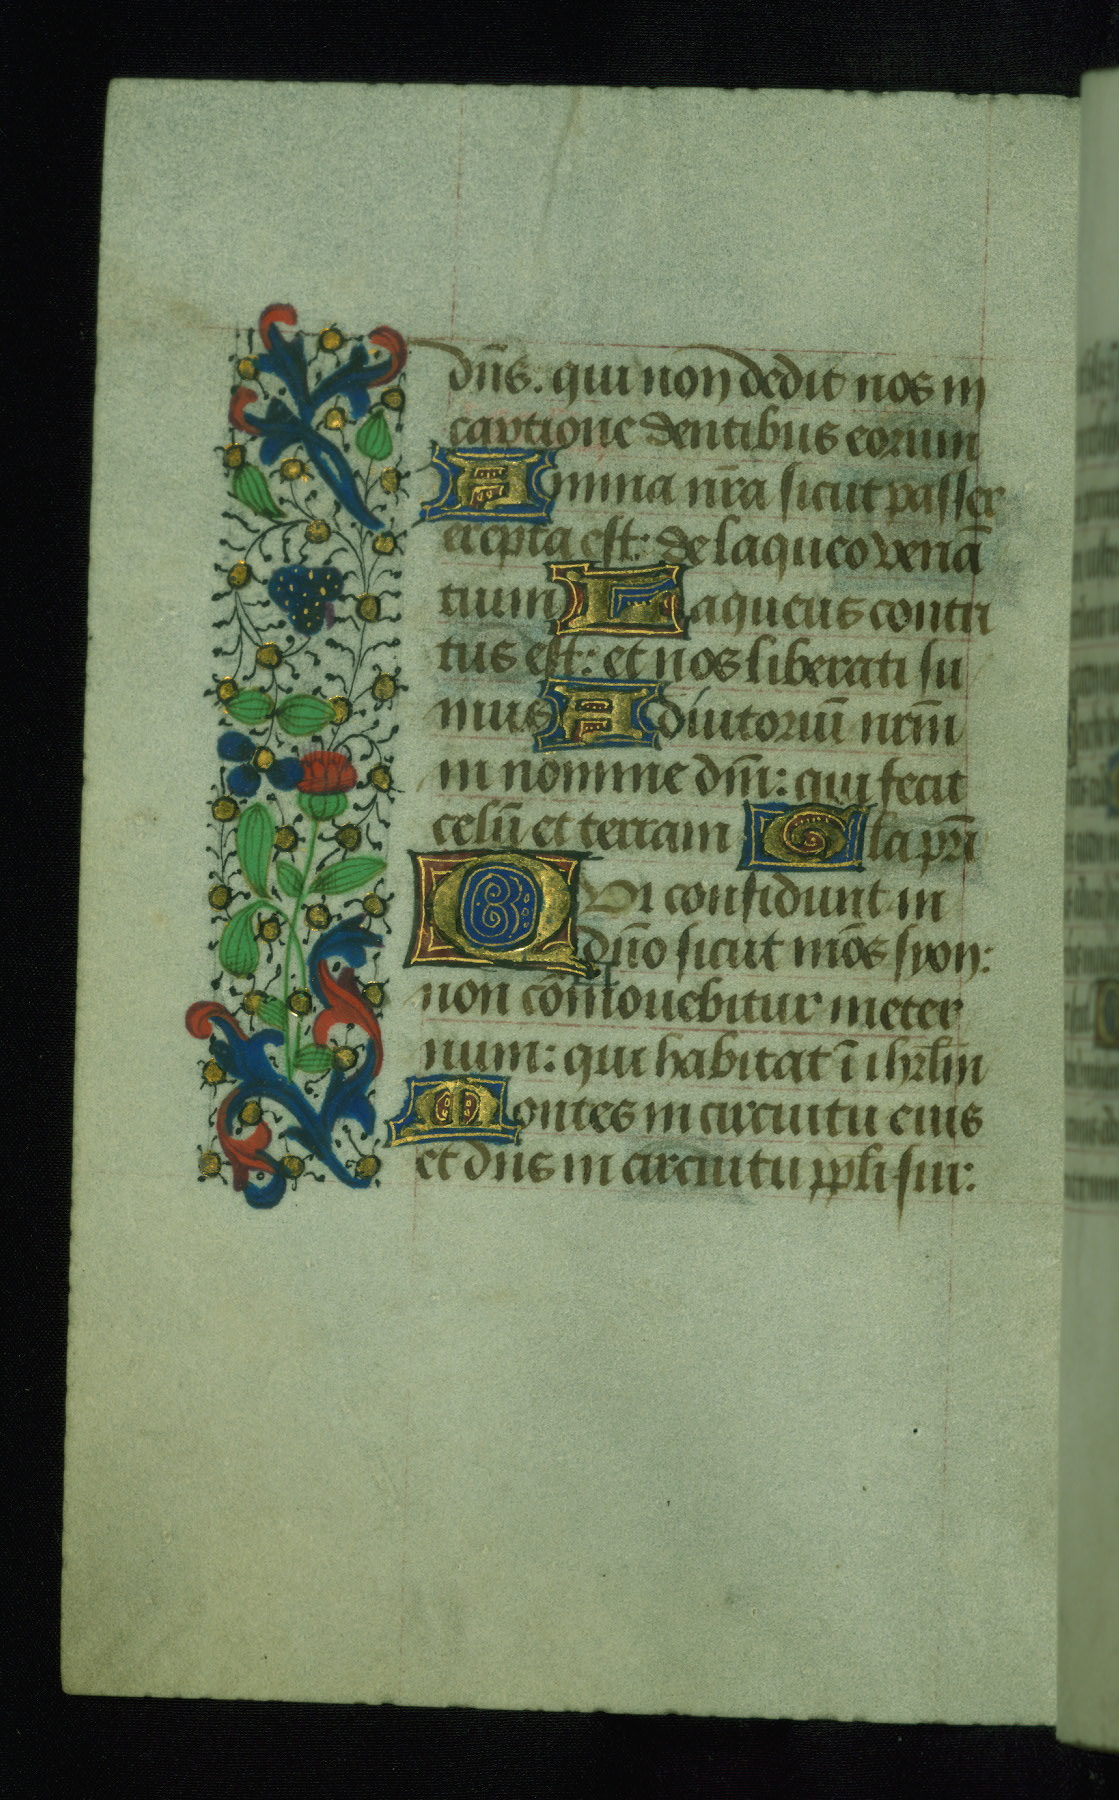 dn̄s. qui non dedit nos in
captione dentibus eorum
Anima nr̄a sicut passer
erepta est: de laqueo venā
tium Laqueus contri
tus est: et nos liberati su
mus Adiutoriū nrm̄
in nomine dn̄i: qui fecit
celū et terram Gla pr̄i
QUi confidunt in
dn̄o sicut mōs syon:
non cōmouebitur in eter
num: qui habitat ī ihrl̄m
Montes in circuitu eius
et dn̄s in circuitu ppli sui: